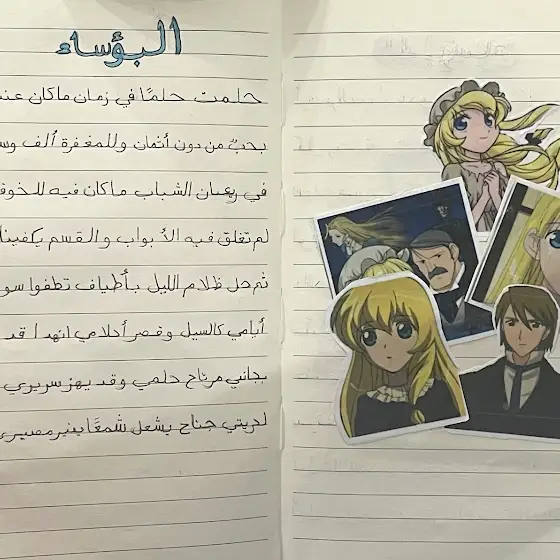 البؤساء
حلمت حلمًا في زمان ماكان عند
بحبٌ من دون أثمان وللمغفرة ألف وس
في ريعان الشباب ماكان فيه للخوف
لم تغلق فيه الأبواب والقسم يكفينا
ثم حل ظلام الليل بأطياف تطفوا سو
أيامي كالسيل وقصر أحلامي انهدا قد
بجانبي مرتاح حلمي وقد يهز سريري
لحريتي جناح يشعل شمعًا ينير مصيري